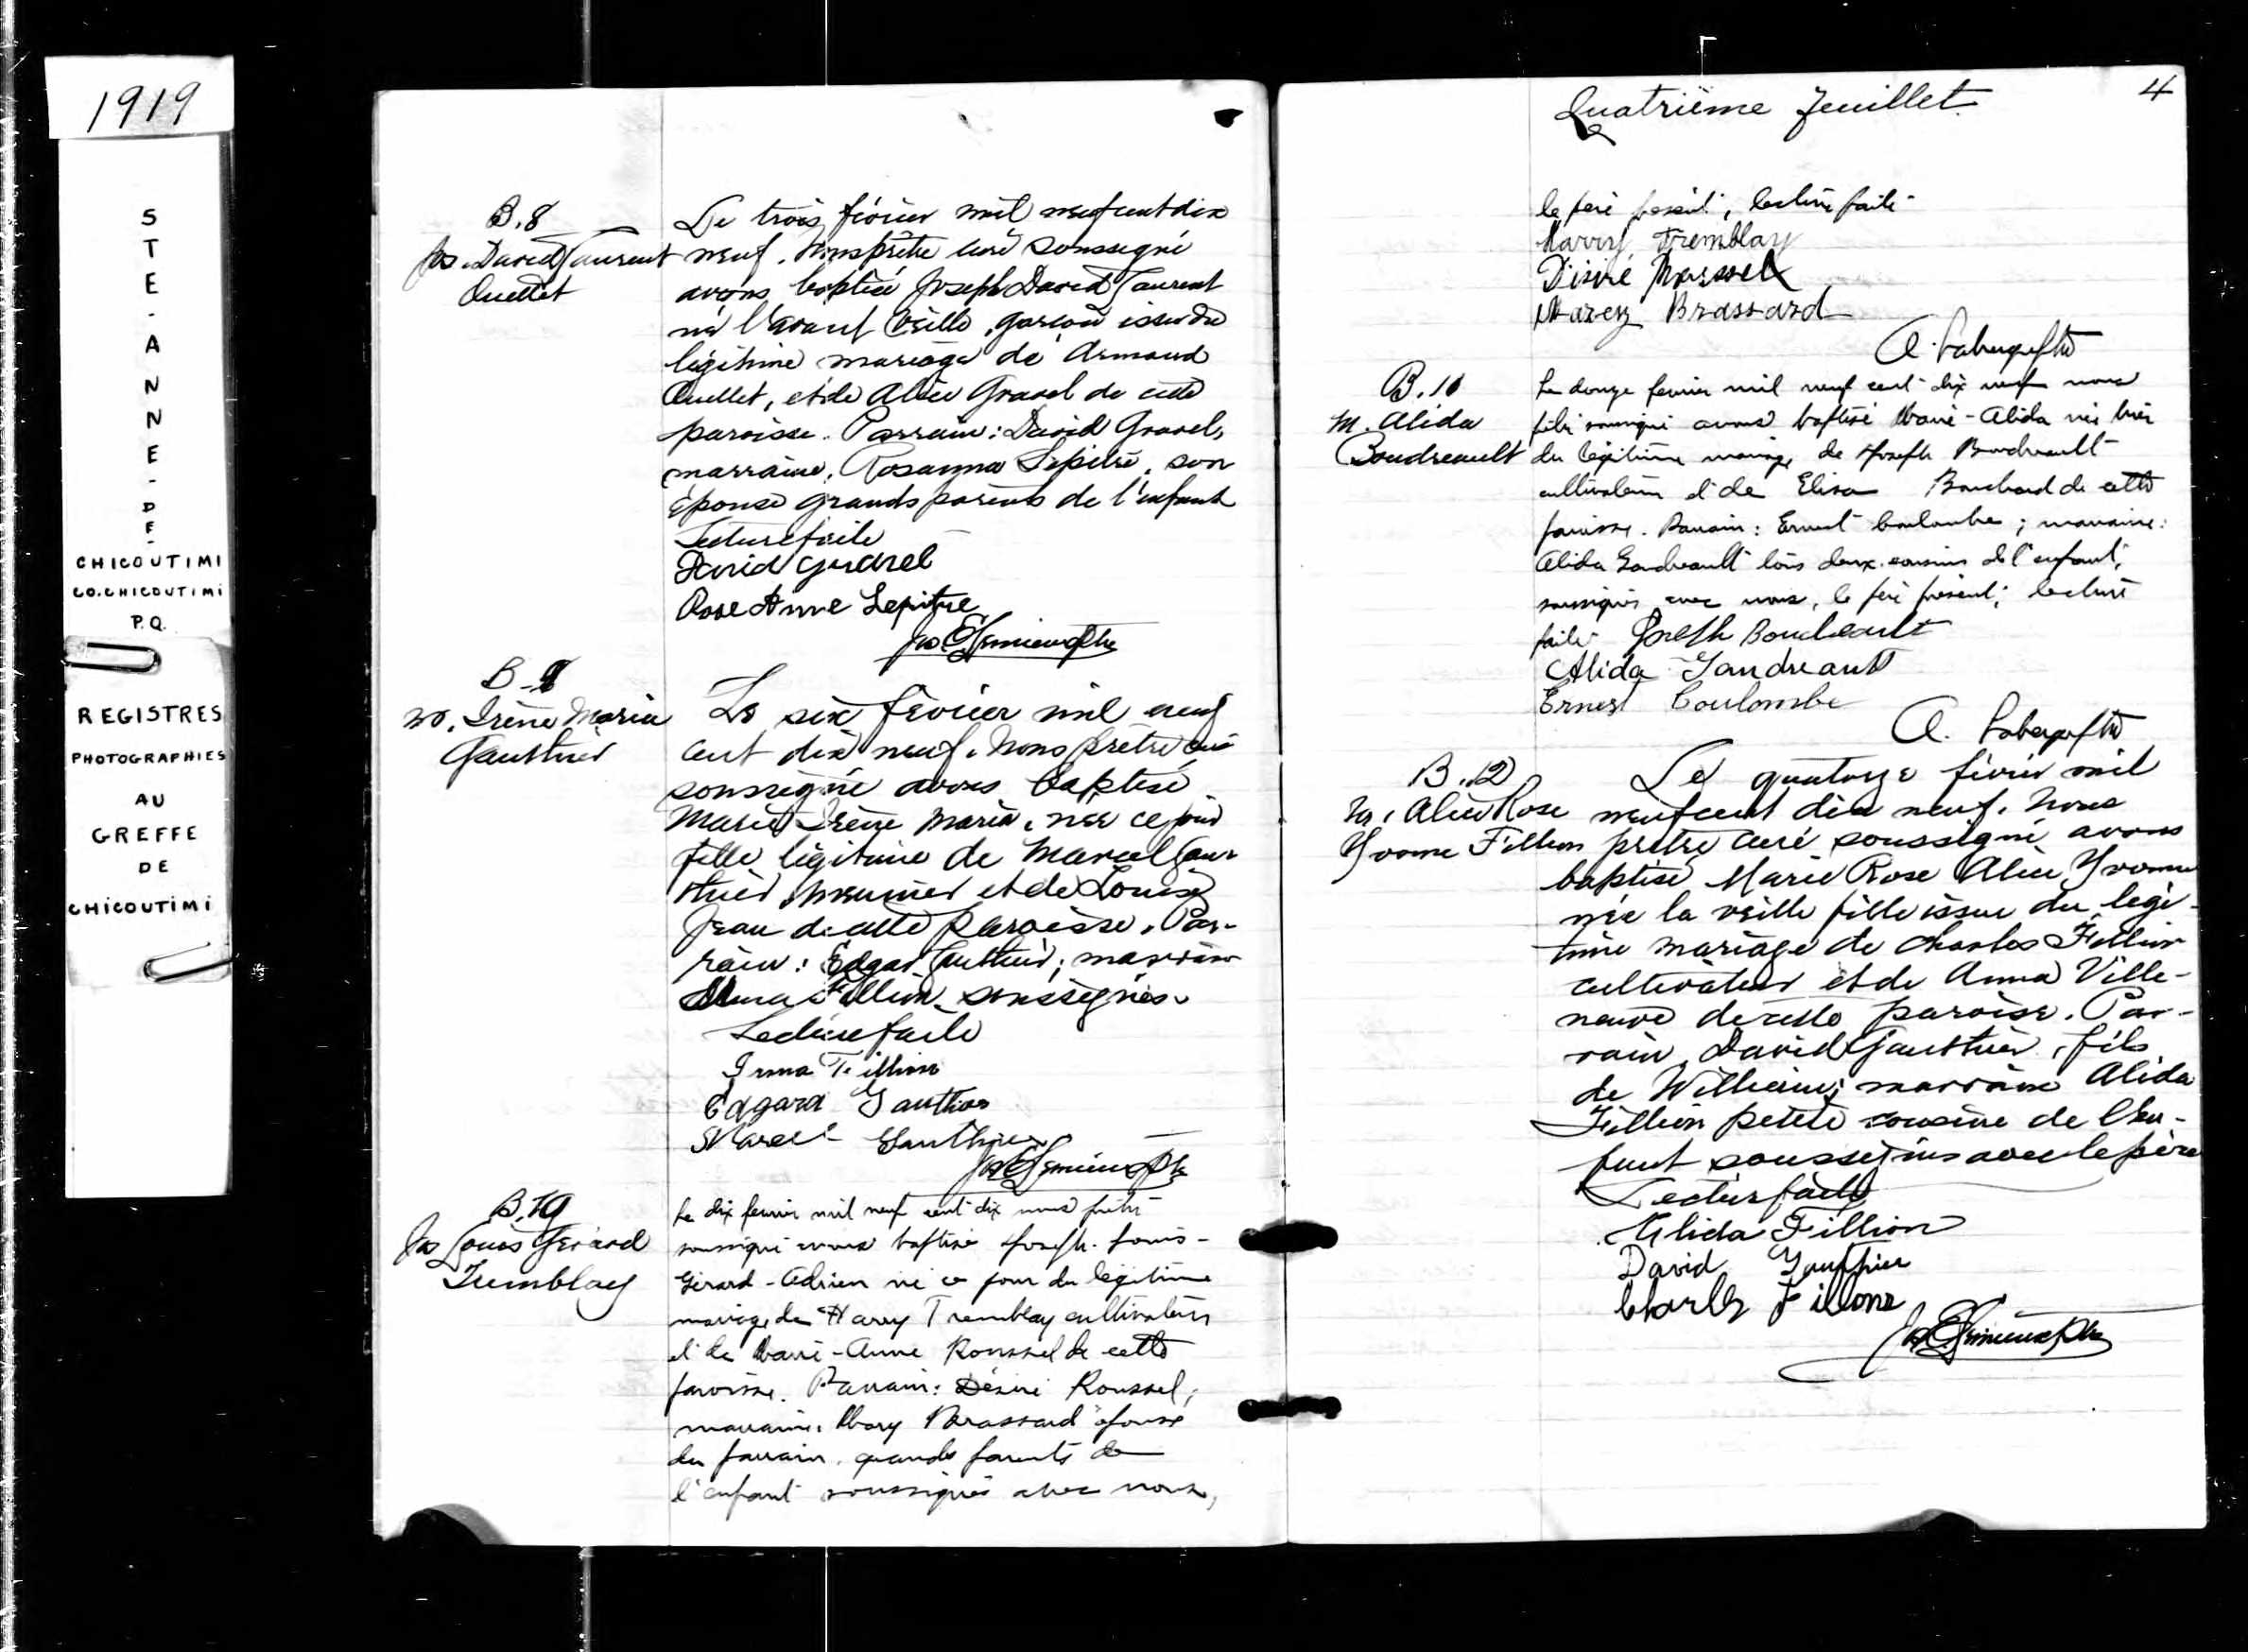 1919
STE-ANNE-DE-
CHICOUTIMI
CO. CHICOUTIMI
P.Q.
REGISTRES
PHOTOGRAPHIES
AU
GREFFE
DE
CHICOUTIMI
B.8
Jos. David Laurent
Ouellet
Le trois février mil neuf cent dix
neuf. Nous prêtre curé soussigné
avons baptisé Joseph David Laurent
né l'avant veille, garçon issu du
légitime mariage de Armand
Ouellet, et de Alice Gravel de cette
paroisse. Parrain: David Gravel,
marraine, Rosanna Lepitre, son
épouse grands parents de l'enfant
Lecture faite
David Gravel
Rose Anne Lepitre
B-9
M. Irène Maria
Gauthier
Le six février mil neuf
cent dix neuf. Nous prêtre curé
soussigné avons baptisé
Marie Irène Maria, née ce jour
fille légitime de Marcel Gau-
thier meunier et de Louise
Jean de cette paroisse. Par-
rain: Edgar Gauthier; marraine
Irma Fillion soussignés.
Lecture faite
Irma Fillion
Edgard Gauthier
Marcel Gauthier
B.10
Jos Louis Gérard
Tremblay
Le dix fevrier mil neuf cent dix nous prêtre
soussigné avons baptisé Joseph-Louis-
Gérard-Adrien né ce jour du légitime
mariage de Harry Tremblay cultivateur
et de Marie-Anne Roussel de cette
paroisse. Parrain: Désiré Roussel;
marraine: Mary Brassard épouse
du parrain, grands parents de
l'enfant soussignés avec nous,
Quatrième feuillet
4
le père présent; lecture faite
Harry Tremblay
Désiré Roussel
Mary Brassard
B.11
M. Alida
Boudreault
Le douze fevrier mil neuf cent dix neuf nous
prêtre soussigné avons baptisé Marie-Alida née hier
du légitime mariage de Joseph Boudreault
cultivateur et de Elisa Bouchard de cette
paroisse. Parrain: Ernest Coulombe; marraine:
Alida Gaudreault tous deux cousins de l'enfant,
soussignés avec nous, le père présent; lecture
faite Joseph Boudreault
Alida Gaudreault
Ernest Coulombe
B.12
M. Alice Rose
Yvonne Fillion
Le quatorze février mil
neuf cent dix neuf. Nous
prêtre curé soussigné avons
baptisé Marie Rose Alice Yvonne
née la veille fille issue du légi-
time mariage de Charles Fillion
cultivateur et de Anna Ville-
neuve de cette paroisse. Par-
rain, David Gauthier, fils
de William; marraine Alida
Fillion petite cousine de l'en-
fant soussignés avec le père
Lecture faite
Alida Fillion
David Gauthier
Charles Fillion